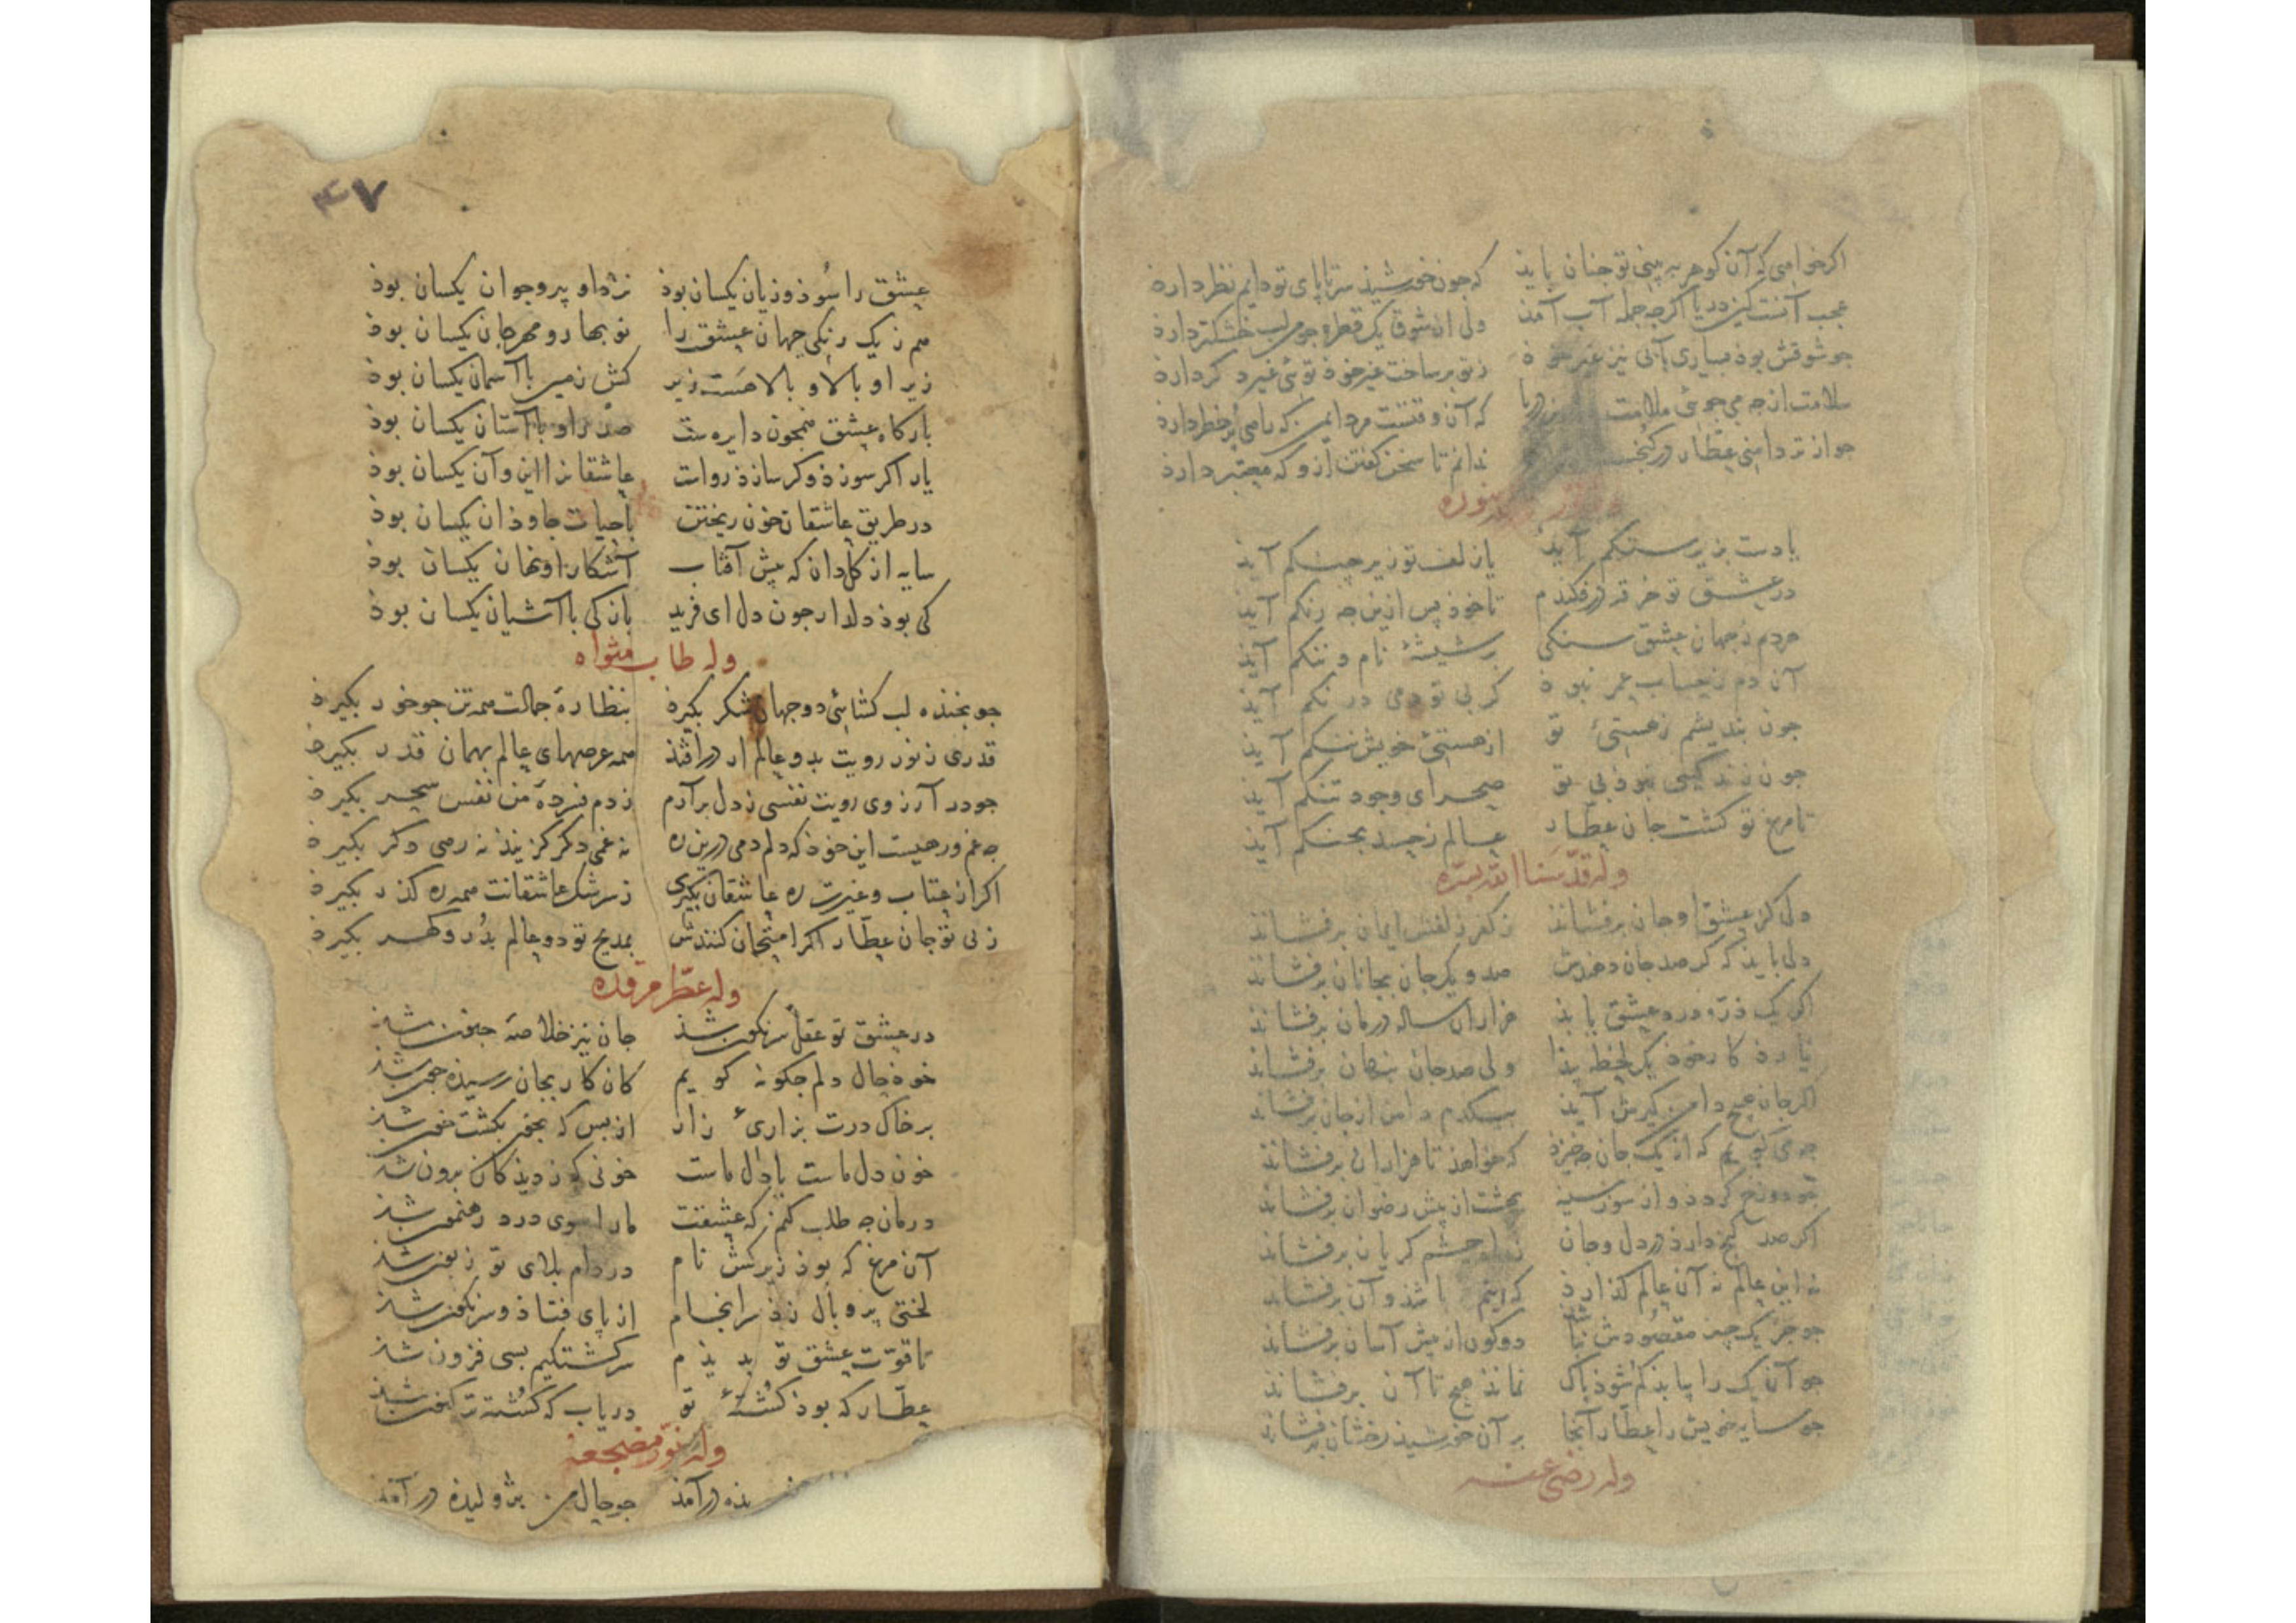 اکر خواهی که آن کوهر ببینی تو جنان بایذ که جون خورشیذ سرتاپای تو دایم نظر دارذ
عجب آنست کین دریا اکرجه جمله آب آمذ ولی از شوق یک قطره جو من لب خشکتر دارذ
جو شوقش بوذ بسیاری بآبی نیز غیر خوذ ز تو بر ساخت غیر خوذ توئی غیر دکر دارذ
سلامت از جه می جوئی ملامت درین دریا که آن وقتست مرد ایمن که راهی پر خطر دارذ
جو از تر دامنی عطار در کنجست ندانم تا سخن کفتن ازو که معتبر دارذ
یا دست بزیر سنکم آیذ یا زلف تو زیر جنکم آیذ
در عشق تو خرقه درفکندم تا خوذ پس ازین جه رنکم آیذ
هردم ز جهان عشق سنکی بر شیشهٔ نام و ننکم آیذ
آن دم ز حساب عمر نبوذ کر بی تو دمی درنکم آیذ
جون بندیشم ز هستیٔ تو از هستیٔ خویش ننکم آیذ
جون زندکیی نبوذ بی تو صحرای وجود تنکم آیذ
تا مرغ تو کشت جان عطار عالم ز حسد بجنکم آیذ
وله قدسنا الله بسره
دلی کز عشق او جان برفشانذ ز کفر زلفش ایمان برفشانذ
دلی بایذ که کر صد جان دهندش صد و یک جان بجانان برفشانذ
اکر یک ذره درد عشق یابذ هزاران ساله درمان برفشانذ
نیارذ کار خوذ یک لحظه پیذا ولی صد جان پنهان برفشانذ
اکر جان هیج دامن کیرش آیذ بیکدم دامن از جان برفشانذ
جه می کویم که از یک جان جه خیزذ که خواهذ تا هزاران برفشانذ
جو دوزخ کردذ و از سوز سینه بهشت از پیش رضوان برفشانذ
اکر صد کنج دارذ در دل و جان ز راه چشم کریان برفشانذ
نه این عالم نه آن عالم کذارذ که این باشذ و آن برفشانذ
جو جز یک چیز مقصودش نباشذ دو کون از پیش آسان برفشانذ
جو آن یک را بیابذ کم شوذ پاک نمانذ هیج تا آن برفشانذ
جو سایه خویش را عطار آنجا بر آن خورشیذ رخشان برفشانذ
وله رضی عنه
۴۷
عشق را سُوذ و زیان یکسان بوذ نزد او پیر و جوان یکسان بوذ
هم ز یک رنکی جهان عشق را نو بهار و مهرجان یکسان بوذ
زیر او بالا و بالا هست زیر کش زمین با آسمان یکسان بوذ
بارکاه عشق همجون دایره ست صدر او با آستان یکسان بوذ
یار اکر سوزذ وکر سازذ رواست عاشقانرا این و آن یکسان بوذ
در طریق عاشقان خون ریختن با حیات جاوذان یکسان بوذ
سایه از کل دان که پیش آفتاب آشکار او نهان یکسان بوذ
کی بوذ دلدار جون دل ای فرید باز کی با آشیان یکسان بوذ
وله طاب مثواه
جو بخنذه لب کشائی دو جهان شکر بکیرذ بنظارهٔ جمالت همه تن جو خور بکیرذ
قدری ز نور رویت بدو عالم ار درافتذ همه عرصهای عالم بهمان قدر بکیرذ
جو در آرزوی رویت نفسی ز دل برآرم ز دم فسردهٔ من نفس سحر بکیرذ
جه غم ورهیست این خوذ که دلم دمی درین ره نه غمی دکر کزینذ نه رهی دکر بکیرذ
اکر از عتاب و غیرت ره عاشقان بکیری ز سرشک عاشقانت همه ره کذر بکیرذ
ز پی تو جان عطار اکر امتحان کنندش بمدیح تو دو عالم بدُر و کهر بکیرذ
وله عطر مرقده
در عشق تو عقل سرنکون شذ جان نیز خلاصهٔ جنون شذ
خوذ حال دلم جکونه کویم کان کار بجان رسیذه جون شذ
بر خاک درت بزاریٔ زار از بس که بخون بکشت خون شذ
خون دل ماست یا دل ماست خونی که ز دیذکان برون شذ
درمان جه طلب کنم که عشقت ما را سوی درد رهنمون شذ
آن مرغ که بوذ زیرکش نام در دام بلای تو زبون شذ
لختی پر و بال زذ سرانجام از پای فتاذ و سرنکون شذ
تا قوّت عشق تو بدیذم سرکشتکیم بسی فزون شذ
عطار که بوذ کشتهٔ تو دریاب که کشته تر کنون شذ
وله نوّر مضجعه
درآمذ جو حال من بژولیذه درآمذ